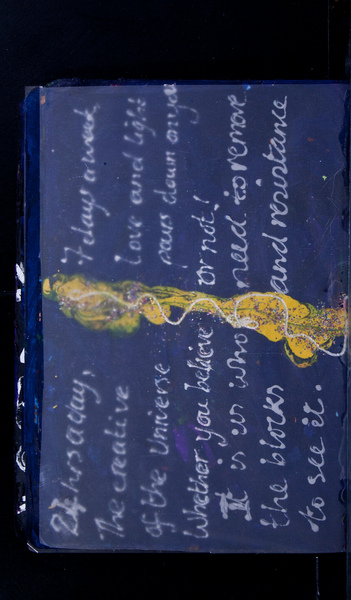 24 hrs a day, 7 days a week
The creative Love and light
of the Universe pours down on you
Whether you believe or not!
It is us who need to remove
the blocks and resistance
to see it.